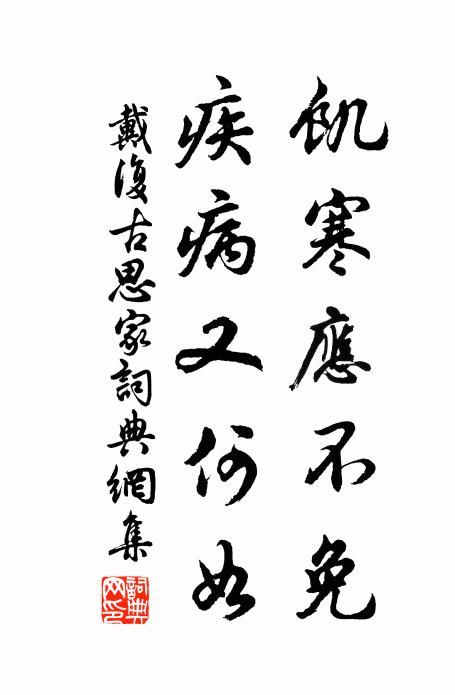 飢寒應不免
疾病又何如
戴復古思家詞典網集
詞典網印